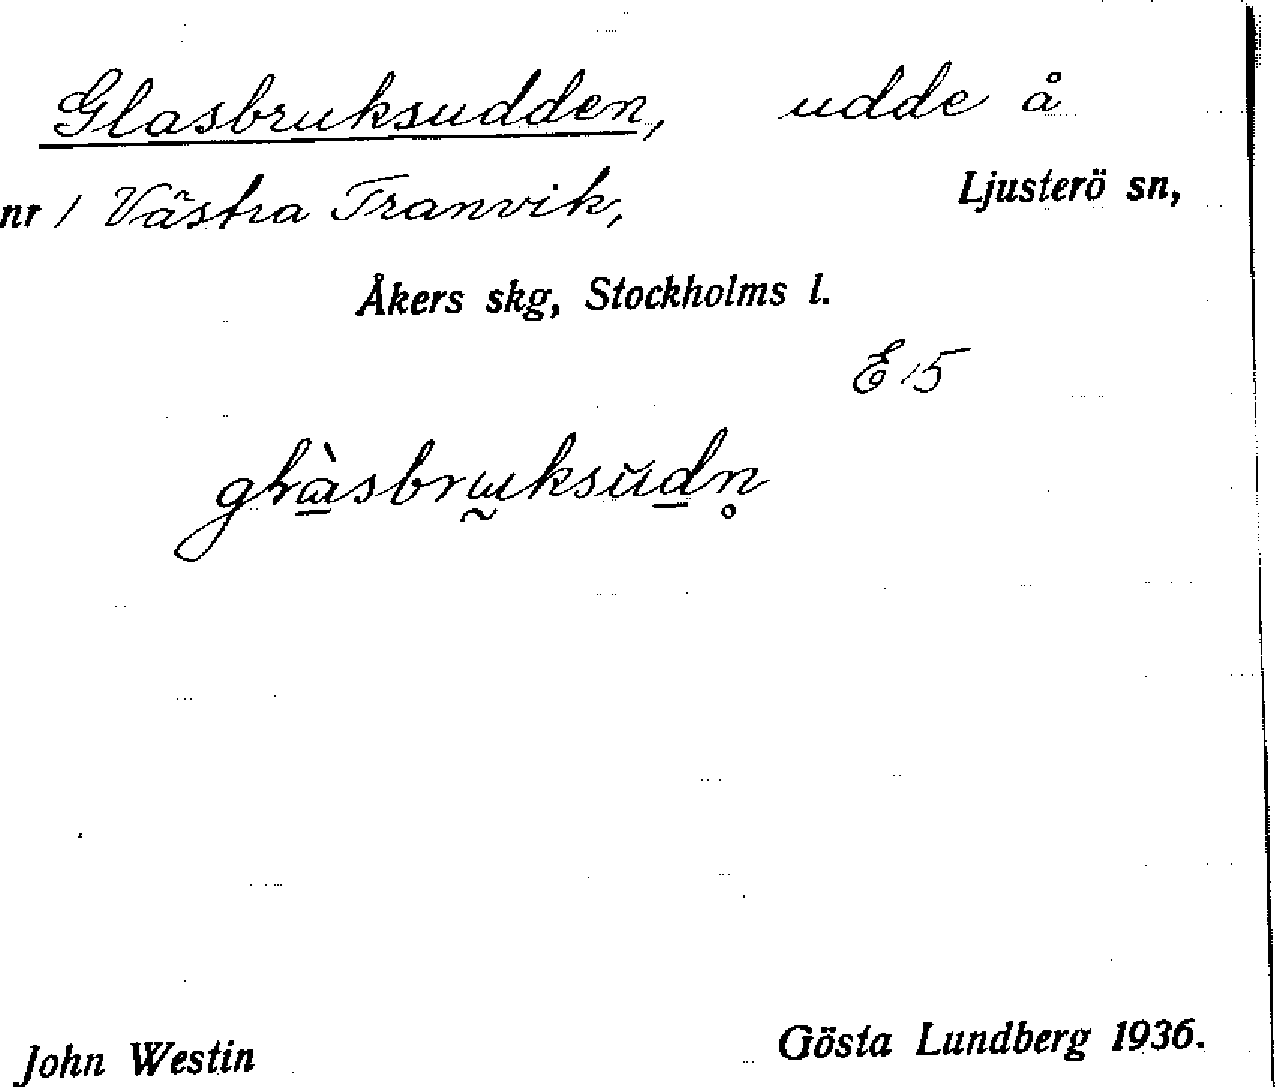 Glasbruksudden, udde å
nr 1 Västra Tranvik, Ljusterö sn,
Åkers skg, Stockholms l.
E 15
John Westin Gösta Lundberg 1936.